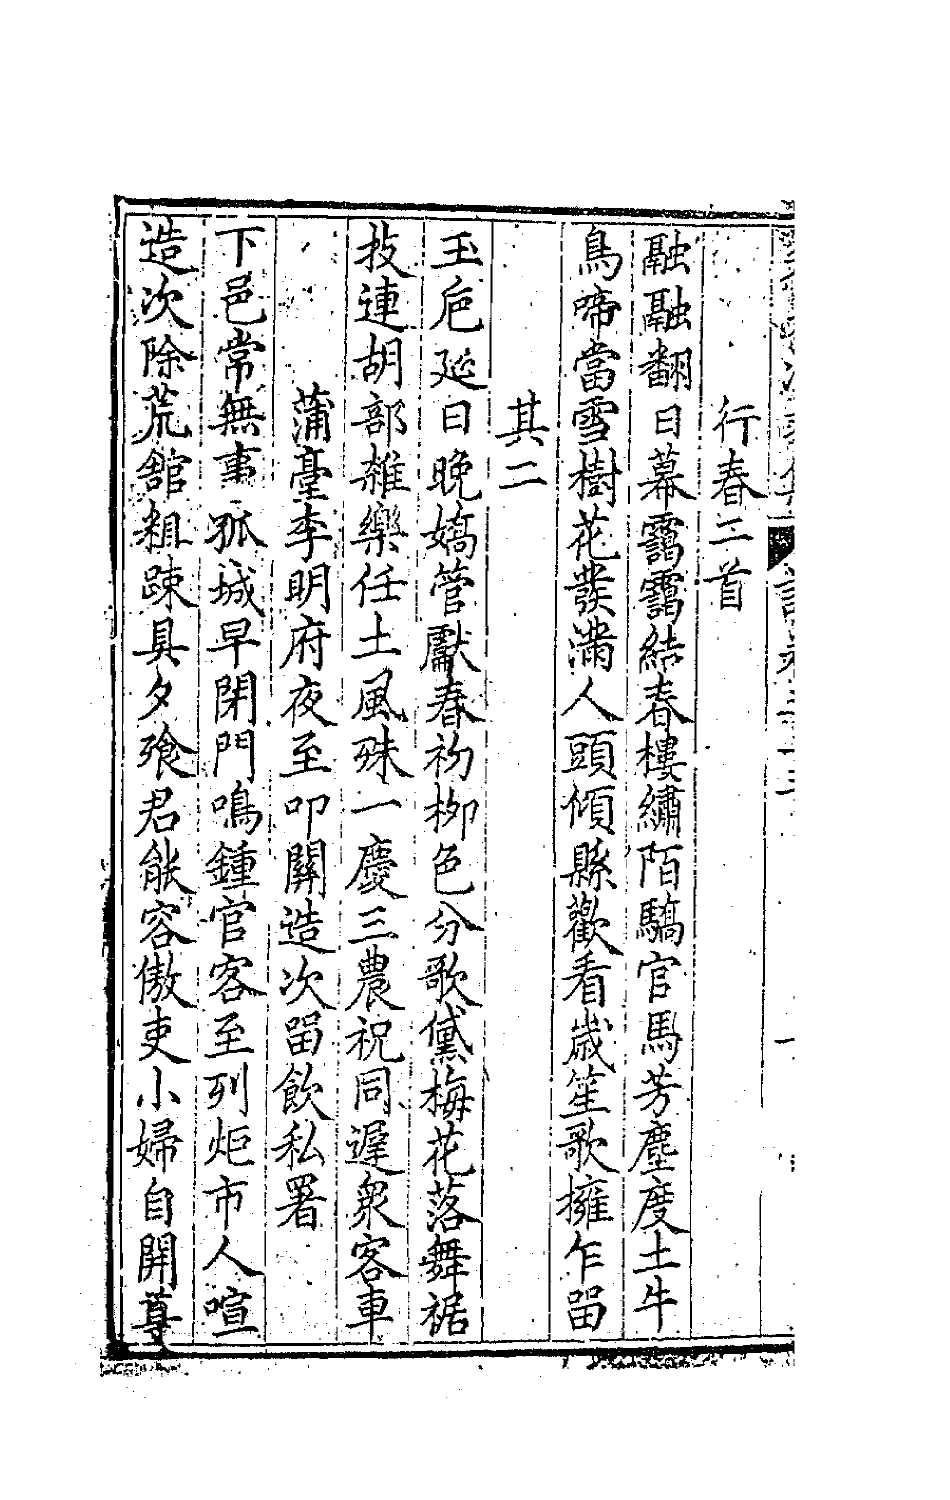 行春三首
融融翻日幕靄靄結春樓繡陌驕官馬芳塵度土牛
鳥啼當雪樹花發滿人頭傾縣歡看歲笙歌擁乍留
其二
玉巵延日晚嬌管獻春初栁色分歌黛梅花落舞裾
技連胡部雜樂任土風殊一慶三農祝同遲衆客車
蒲臺李明府夜至叩關造次留飲私署
下邑常無事孤城早閉門鳴鍾官客至列炬市人喧
造次除荒舘粗踈具夕飱君能容傲吏小婦自開尊